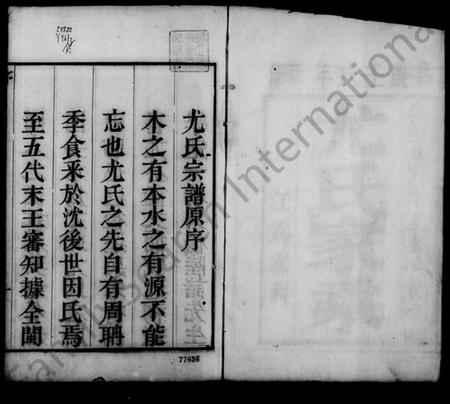 尤氏宗譜原序
木之有本水之有源不能
忘也尤氏之先自有周聃
季食采於沈後世因氏焉
至五代末王審知據全閩
77636
FamilySearch International